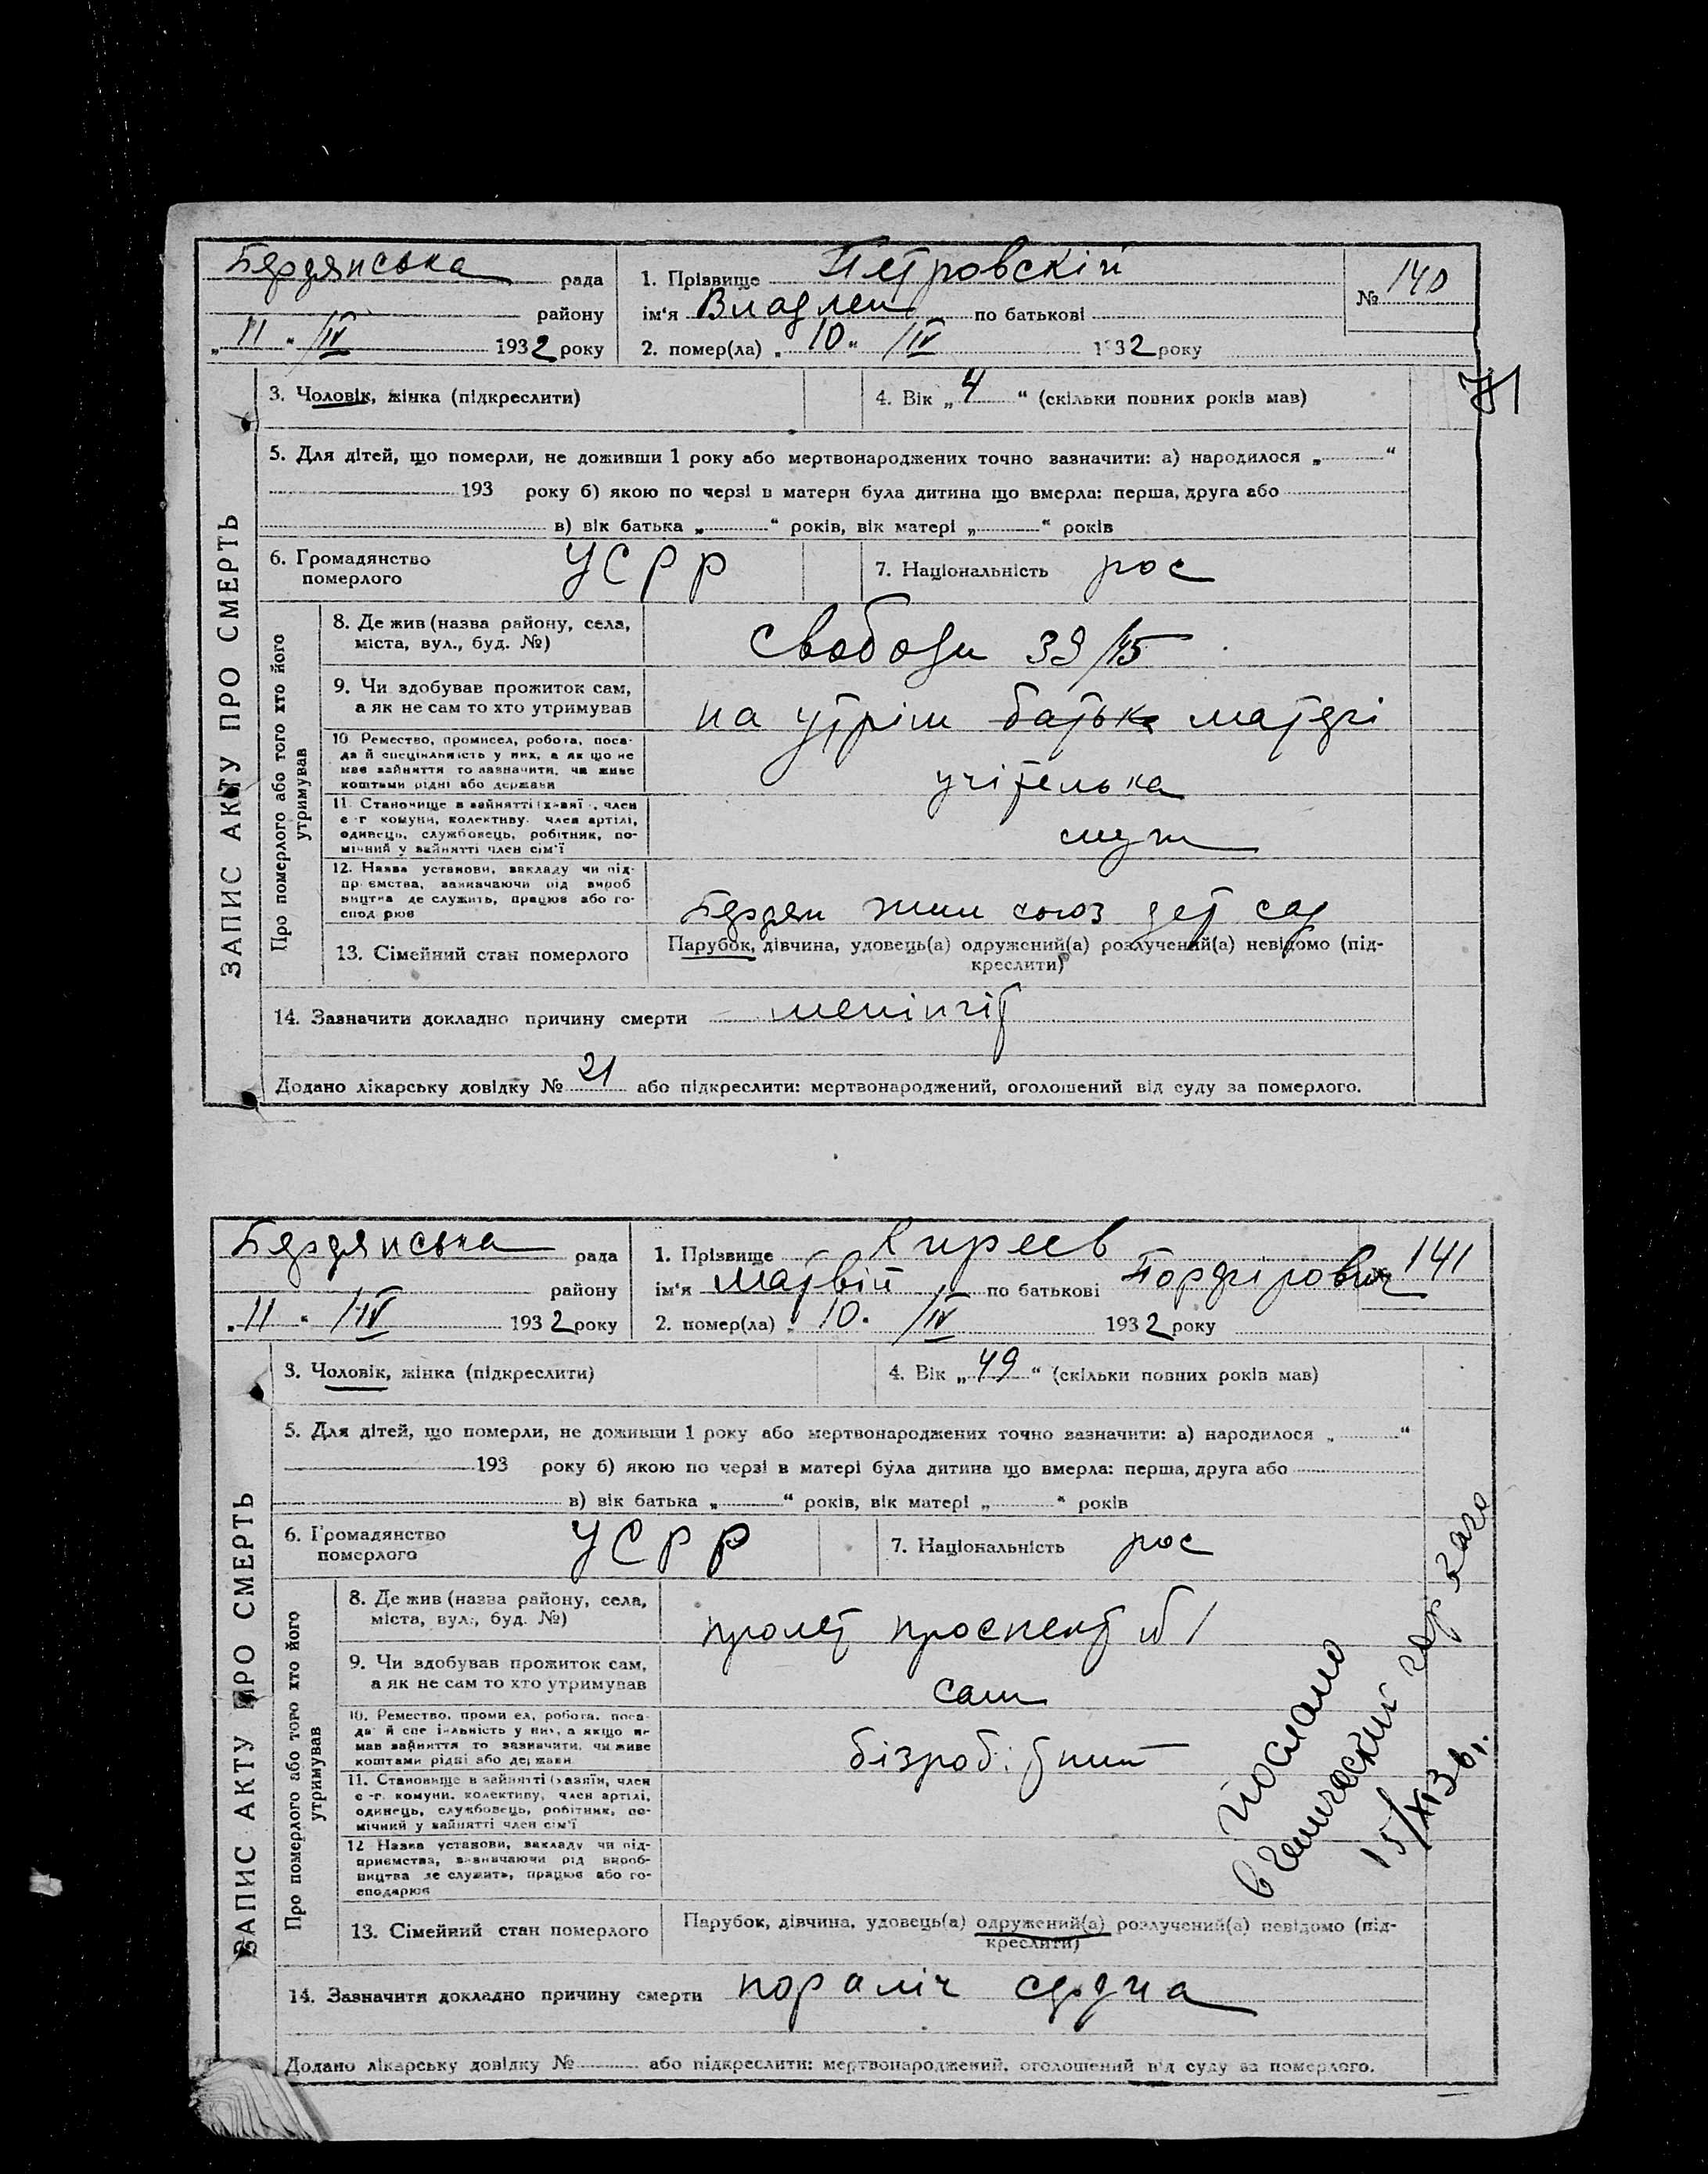 Бердянська рада
району
„ 11 “ /IV 1932 року
1. Прізвище Петровскій
ім'я Владлен по батькові
2. помер(ла) „ 10 “ /IV 1932 року
№ 140
71
ЗАПИС АКТУ ПРО СМЕРТЬ
3. Чоловік, жінка (підкреслити)
4. Вік „ 4 “ (скільки повних років мав)
5. Для дітей, що померли, не доживши 1 року або мертвонароджених точно зазначити: а) народилося „ “
193 року б) якою по черзі в матери була дитина що вмерла: перша, друга або
в) вік батька „ “ років, вік матері „ “ років
6. Громадянство
померлого
УСРР
7. Національність рос
Про померлого або того хто його
утримував
8. Де жив (назва району, села,
міста, вул., буд. №)
Свободи 39/45
9. Чи здобував прожиток сам,
а як не сам то хто утримував
на утрім батька матері
10. Ремество, промисел, робота, поса-
да й спеціяльність у них, а як що не
мав зайняття то зазначити, чи живе
коштами рідні або держави
учітелька
11. Становище в зайнятті (хазяї , член
с -г комуни, колективу, член артілі,
одинець, службовець, робітник, по-
мічний у зайнятті член сім'ї
служ
12. Назва установи, закладу чи під-
приємства, зазначаючи рід вироб
ництва де служить, працює або го-
сподарює
Бердян жил союз дет сад
13. Сімейний стан померлого
Парубок, дівчина, удовець(а) одружений(а) розлучений(а) невідомо (під-
креслити)
14. Зазначити докладно причину смерти менінгіт
Додано лікарську довідку № 21 або підкреслити: мертвонароджений, оголошений від суду за померлого.
Бердянська рада
району
„ 11 “ /IV 1932 року
1. Прізвище Киреев
ім'я Матвій по батькові Порфірович
2. помер(ла) „ 10 “ /IV 1932 року
141
ЗАПИС АКТУ ПРО СМЕРТЬ
3. Чоловік, жінка (підкреслити)
4. Вік „ 49 “ (скільки повних років мав)
5. Для дітей, що померли, не доживши 1 року або мертвонароджених точно зазначити: а) народилося „ “
193 року б) якою по черзі в матері була дитина що вмерла: перша, друга або
в) вік батька „ “ років, вік матері „ “ років
6. Громадянство
померлого
УСРР
7. Національність рос
Про померлого або того хто його
утримував
8. Де жив (назва району, села,
міста, вул., буд. №)
пролет проспект №1
9. Чи здобував прожиток сам,
а як не сам то хто утримував
сам
10. Ремество, промисел, робота, поса-
да й спеціяльність у них, а якщо не
мав зайняття то зазначити, чи живе
коштами рідні або держави
бізробітний
11. Становище в зайнятті (хазяїн, член
с -г. комуни, колективу, член артілі,
одинець, службовець, робітник, по-
мічний у зайнятті член сім'ї
12 Назва установи, закладу чи під-
приємства, зазначаючи рід вироб-
ництва де служить, працює або го-
сподарює
13. Сімейний стан померлого
Парубок, дівчина, удовець(а) одружений(а) розлучений(а) невідомо (під-
креслити)
14. Зазначити докладно причину смерти пораліч сердца
Додано лікарську довідку № або підкреслити: мертвонароджений, оголошений від суду за померлого.
послано
в Генический гор загс
15/XI 36 г.